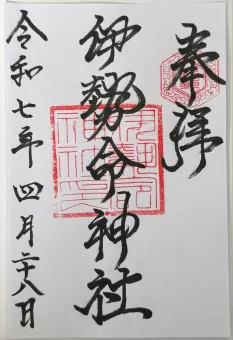 奉拝
伊勢命神社
令和七年四月二十八日